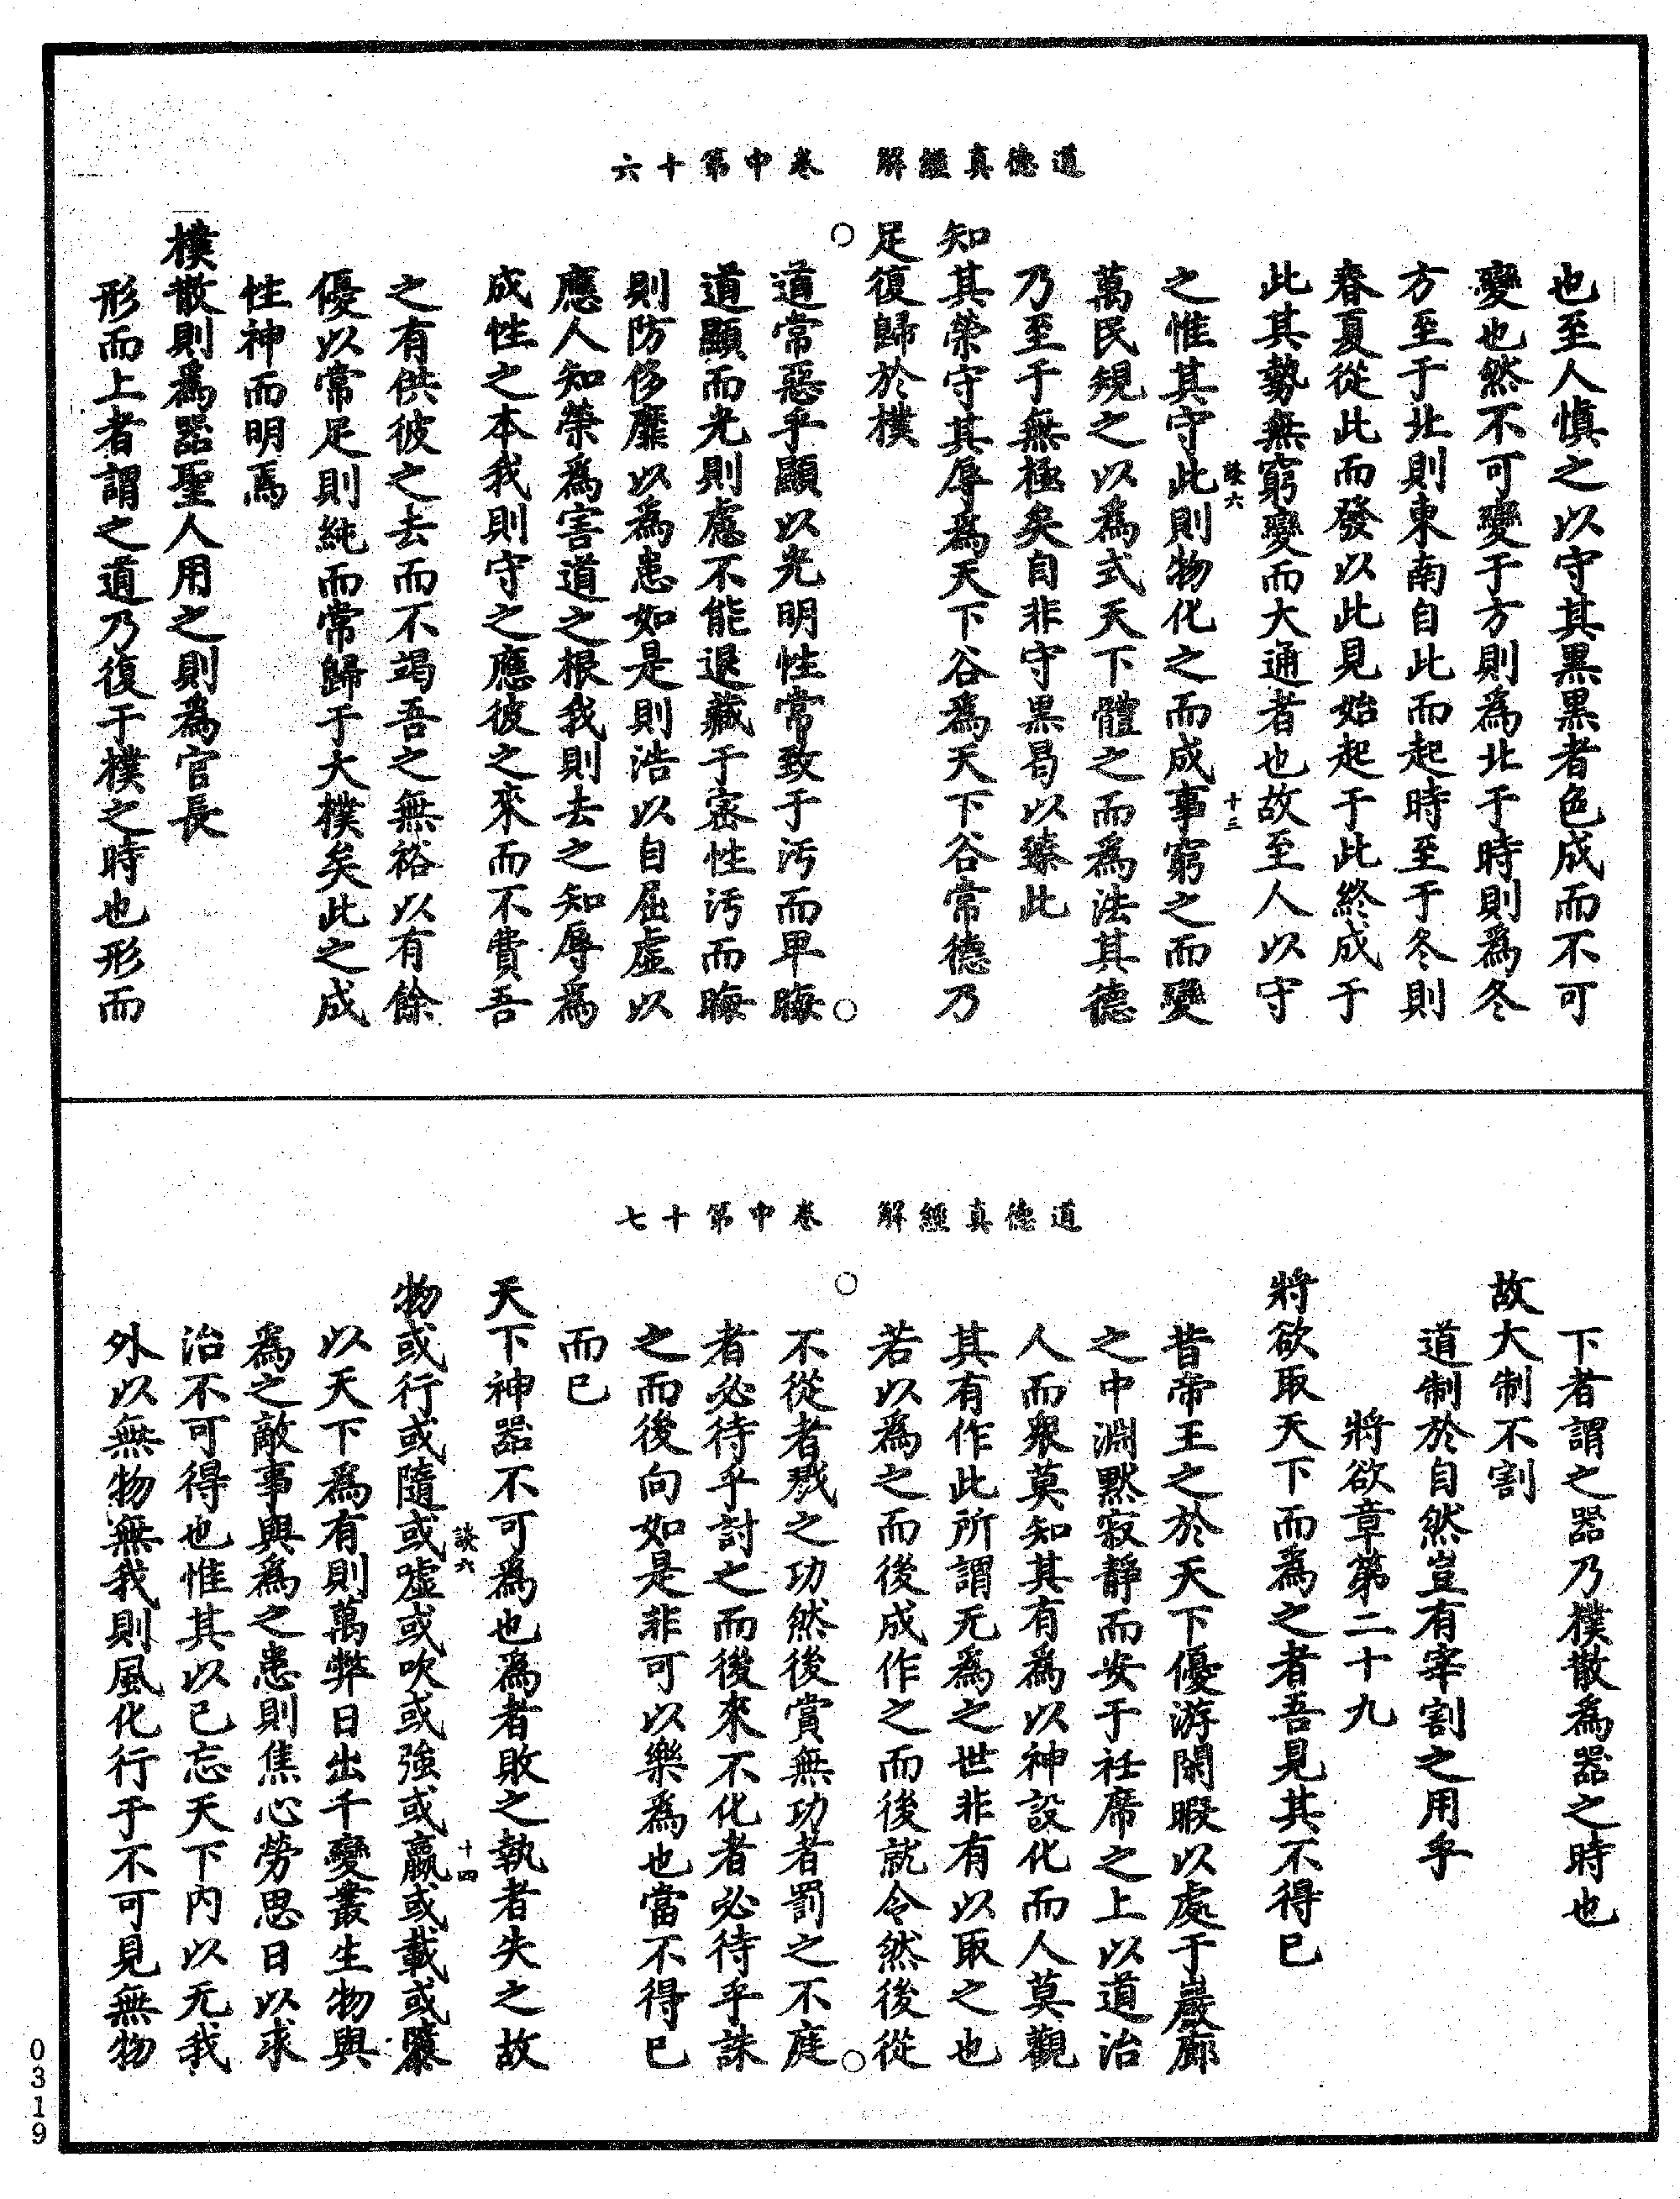 道德真經解　卷中第十六
也至人慎之以守其黑黑者色成而不可
變也然不可變于方則為北于時則為冬
方至于北則東南自此而起時至于冬則
春夏從此而發以此見始起于此終成于
此其勢無窮變而大通者也故至人以守
談六　十三
之惟其守此則物化之而成事窮之而變
萬民規之以為式天下體之而為法其德
乃至于無極矣自非守黑曷以臻此
知其榮守其辱為天下谷為天下谷常德乃
足復歸於樸
○　○
道常惡乎顯以光明性常致于污而卑晦
道顯而光則慮不能退藏于密性污而晦
則防侈靡以為患如是則浩以自屈虛以
應人知榮為害道之根我則去之知辱為
成性之本我則守之應彼之來而不費吾
之有供彼之去而不竭吾之無裕以有餘
優以常足則純而常歸于大樸矣此之成
性神而明焉
樸散則為器聖人用之則為官長
形而上者謂之道乃復于樸之時也形而
道德真經解　卷中第十七
下者謂之器乃樸散為器之時也
故大制不割
道制於自然豈有宰割之用乎
將欲章第二十九
將欲取天下而為之者吾見其不得已
昔帝王之於天下優游閑暇以處于巖廊
之中淵默寂靜而安于衽席之上以道治
人而眾莫知其有為以神設化而人莫觀
其有作此所謂无為之世非有以取之也
若以為之而後成作之而後就令然後從
○　○
不從者戮之功然後賞無功者罰之不庭
者必待乎討之而後來不化者必待乎誅
之而後向如是非可以樂為也當不得已
而已
天下神器不可為也為者敗之執者失之故
談六　十四
物或行或隨或噓或吹或強或羸或載或隳
以天下為有則萬弊日出千變叢生物與
為之敵事與為之患則焦心勞思日以求
治不可得也惟其以己忘天下內以无我
外以無物無我則風化行于不可見無物
0319